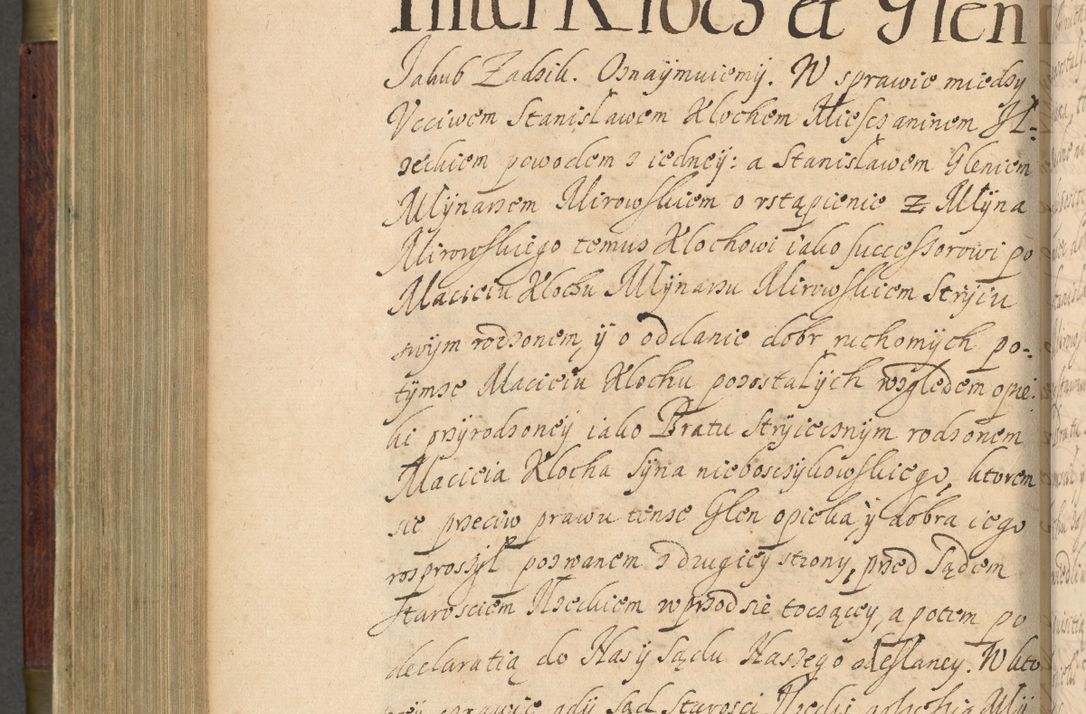 Inter Kłocs et Glen
Jakub Zadzik. Oznaÿmuiemÿ. W sprawie miedzy
Vcciwem Stanisławem Klochem Miesczaninem Jl=
zeckiem powodem z iedneÿ: a Stanisławem Gleniem
Młÿnarzem Mirowskiem o vstąpienie Z Młÿna
Mirowskiego temuz Klochowi iako successorowi po
Macieiu Klochu Młÿnarzu Mirowskiem Strÿiu
swÿm rodzonem, ÿ o oddanie dobr ruchomÿch po=
tÿmze Macieiu Klochu pozostałÿch względem opie=
ki przÿrodzoneÿ iako Bratu Strÿiecznÿm rodzonem
Macieia Klocha sÿna nieboszczÿkowskiego, ktorem
sie przeciw prawu tenze Glen opieka ÿ dobra iego
rosproszÿł pozwanem z drugieÿ strony, przed Sądem
Starosciem Jlzeckiem wprzod sie toczącey, a potem po
declaratią do Nas ÿ Sądu Naszego odesłaney. W kto
reÿ sprawie gdÿ Sąd Starosci Jlzecki Mlÿ